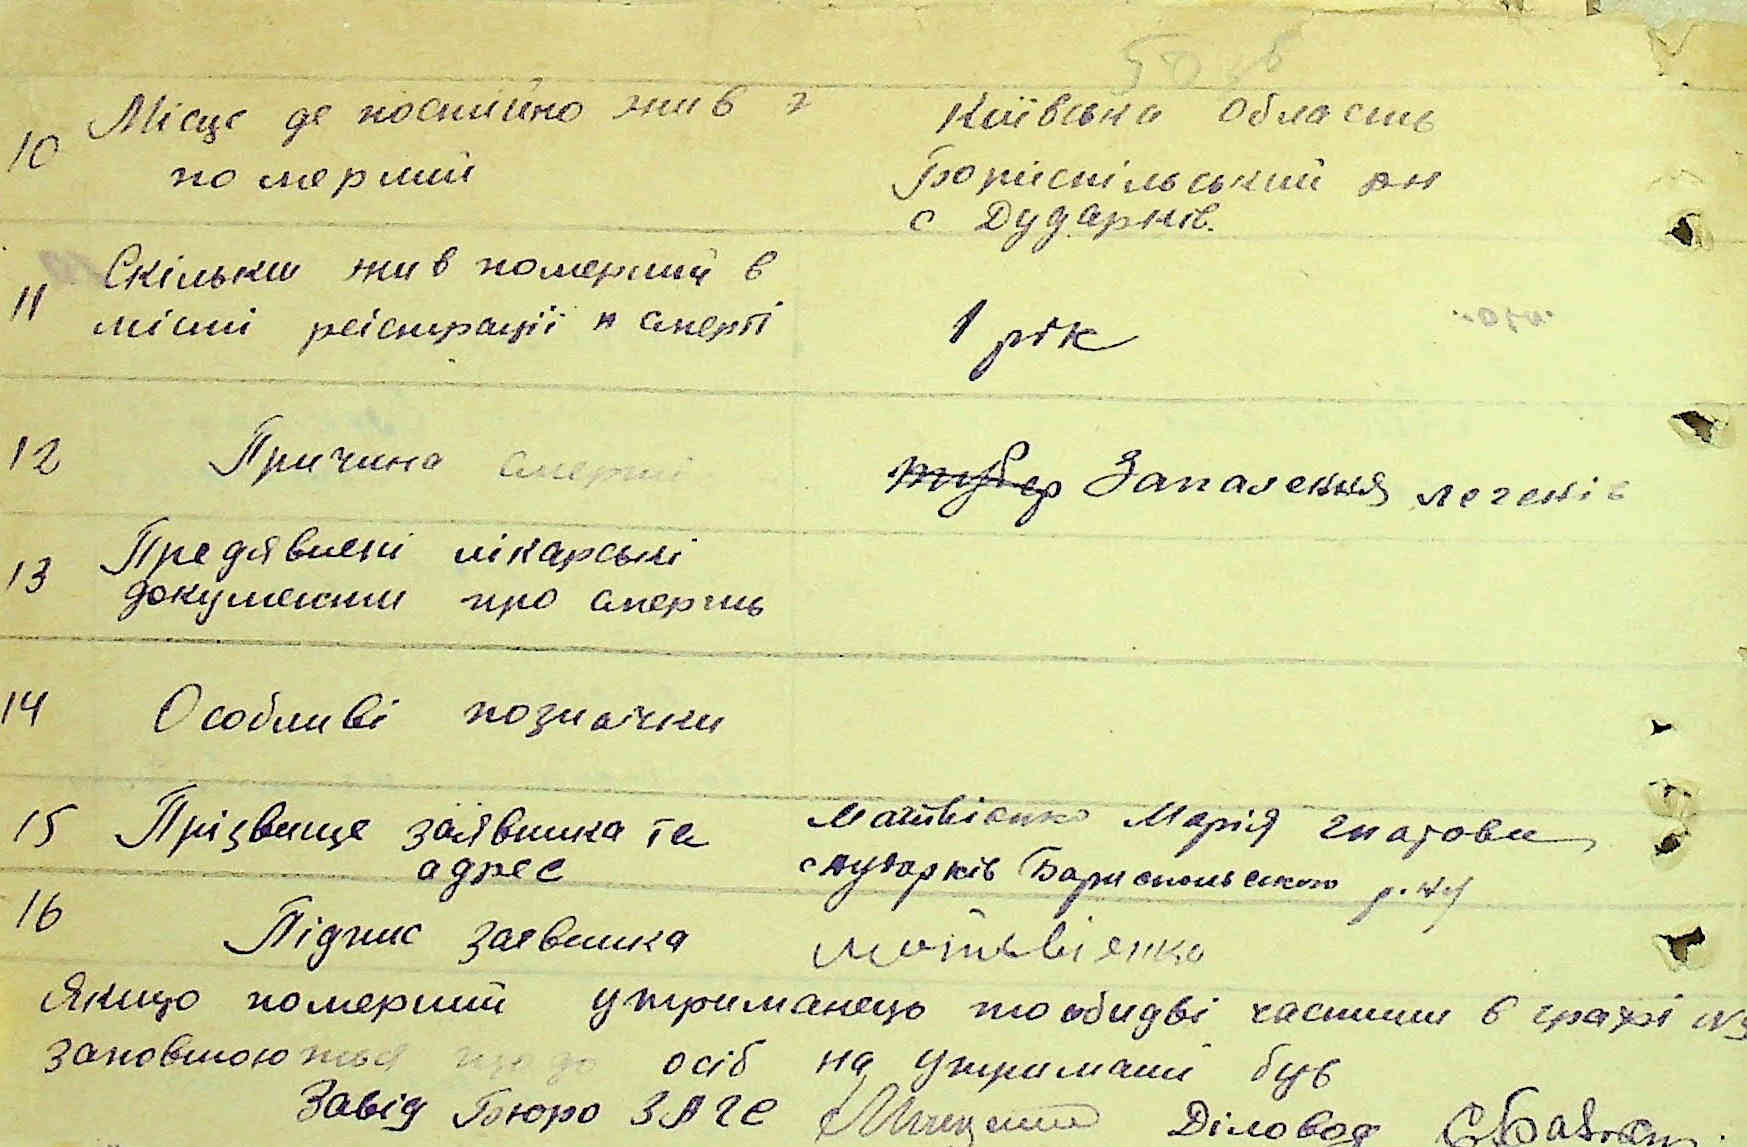 10 Місце де постійно жив
померлий
Київська область
Бориспільський рн
с Дударків.
11 Скільки жив померлий в
місті реістрації смерті
1 рік
12 Причина смерті
тубер Запалення легенів
13 Предявлені лікарські
документи про смерть
14 Особливі позначки
15 Прізвище заявника та
адрес
Матвієнко Марія Гнатовн
с Дударків Бориспольского р.
16 Підпис заявника
Матвієнко
Якщо померший утриманець то обидві частини в графі
заповнюються що до осіб на утримані був
Завід Бюро ЗАГС Діловод